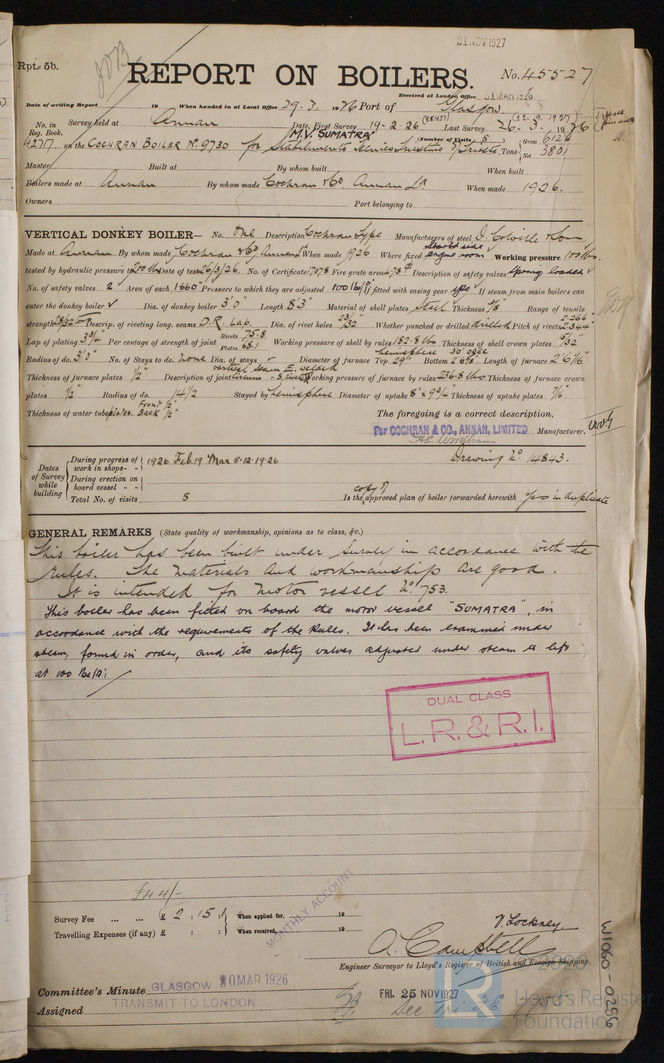 21 NOV 1927
Rpt. 5b.
REPORT ON BOILERS.
No. 45527
Received at London Office 31 MAR 1926
Date of writing Report 19 When handed in at Local Office 29.3.1926 Port of Glasgow
No. in Reg. Book. Survey held at Annan Date, First Survey 19-2-26 Last Survey 26.3.1926
42717 on the COCHRAN BOILER No. 9730 for M.V. "SUMATRA" (Number of Visits 5) Tons Gross 6126 Net 3801
Master Built at By whom built When built
Boilers made at Annan By whom made Cochran & Co Annan Ld When made 1926.
Owners Port belonging to
VERTICAL DONKEY BOILER— No. One Description Cochran Type Manufacturers of steel D. Colville & Sons
Made at Annan By whom made Cochran & Co Annan Ld When made 1926 Where fixed engine room Working pressure 100 lbs.
tested by hydraulic pressure to 200 lbs Date of test 26/3/26. No. of Certificate 7078 Fire grate area Description of safety valves Spring loaded
No. of safety valves 2 Area of each Pressure to which they are adjusted 100 lb/□" If fitted with easing gear yes If steam from main boilers can
enter the donkey boiler Dia. of donkey boiler Length 8'3" Material of shell plates Steel Thickness Range of tensile
strength 28/32 tons Descrip. of riveting long. seams D.R. Lap. Dia. of rivet holes Whether punched or drilled drilled Pitch of rivets
Lap of plating 3¾" Per centage of strength of joint Rivets 75.8 Plates 68.1 Working pressure of shell by rules 182.8 lbs Thickness of shell crown plates
Radius of do. 3'3" No. of Stays to do. none Dia. of stays Diameter of furnace Top 29" Bottom Length of furnace
Thickness of furnace plates ½" Description of joint vertical seam E. welded Working pressure of furnace by rules 236.8 lbs Thickness of furnace crown
plates ½" Radius of do. 14½ Stayed by hemisphere Diameter of uptake Thickness of uptake plates
Thickness of water tube plates Front ½" Back ½"
The foregoing is a correct description,
For COCHRAN & CO., ANNAN, LIMITED Manufacturer.
Dates of Survey while building
During progress of work in shops - - 1926 Feb. 19 Mar 5-12-19-26
Drawing No. 14843.
During erection on board vessel - -
Total No. of visits 5
Is the copy of approved plan of boiler forwarded herewith Yes in duplicate
GENERAL REMARKS (State quality of workmanship, opinions as to class, &c.)
This boiler has been built under survey in accordance with the
Rules. The materials and workmanship are good.
It is intended for motor vessel No. 753.
This boiler has been fitted on board the motor vessel "SUMATRA", in
accordance with the requirements of the Rules. It has been examined under
steam, found in order, and its safety valves adjusted under steam to lift
at 100 lbs/□"
DUAL CLASS
L.R. & R.I.
£44/-
Survey Fee ... ... £ 2 : 15 : When applied for, 19
Travelling Expenses (if any) £ : : When received, 19
MONTHLY ACCOUNT
A. Campbell
Engineer Surveyor to Lloyd's Register of British and Foreign Shipping.
Committee's Minute GLASGOW 30 MAR 1926
FRI. 25 NOV 1927
Assigned TRANSMIT TO LONDON
W1060-0256
Lloyd's Register
Foundation